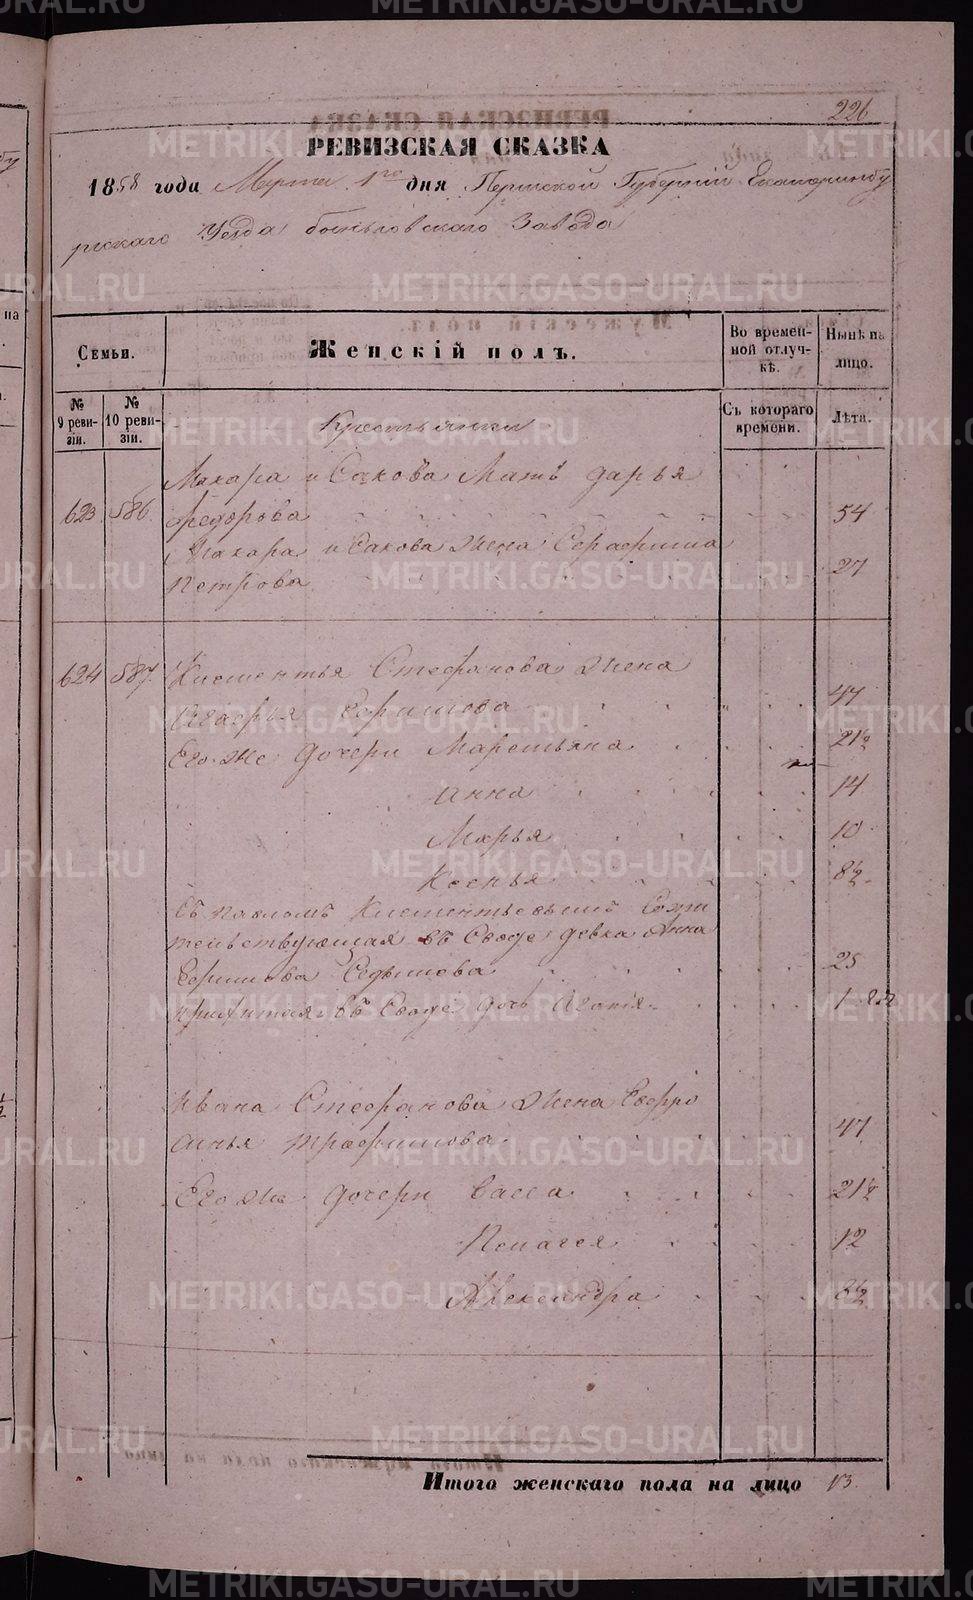 226
РЕВИЗСКАЯ СКАЗКА
1858 года Марта 1го дня Пермской Губерніи Екатеринбу
ргскаго Уезда Завода
Семьи.
Женскій полъ.
Во времен-
ной отлуч-
кѣ.
Нынѣ на
лицо.
№
9 реви-
зіи.
№
10 реви-
зіи.
Крестьянки
Съ котораго
времени.
Лѣта.
Макара Исакова Мать дарья
623. 586. Федорова 54
Макара Исакова Жена Серафима
Петрова 27
624 587. Клементья Стефанова Жена
Агафья Ефимова 47
Его же дочери Маремьяна 21½
Анна 14
Марья 10
Ксенья 8½
Съ Павломъ Клементьевымъ Сожи
тельствующая въ Сводѣ девка Анна
Ефимова Седымова 25
прижитая въ Сводѣ дочь 1
Ивана Стефанова Жена Евфро
синья Трофимова 47
Его же дочери Васса 21½
Пелагея 12
Александра 2½
Итого женскаго пола на лицо 13.
METRIKI.GASO-URAL.RU